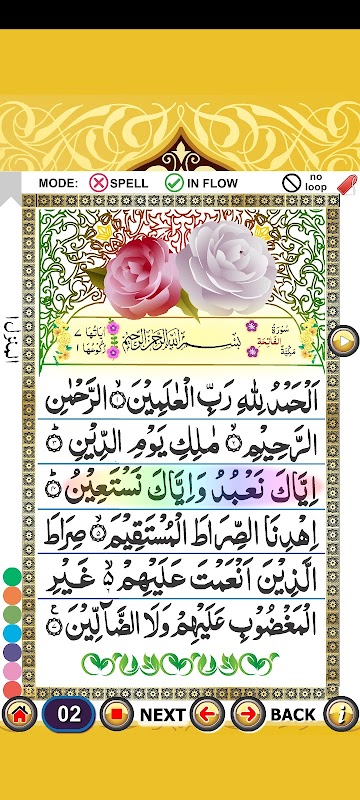 MODE: SPELL IN FLOW no loop
سُورَةُ الْفَاتِحَةِ مَكِّيَّةٌ
بِسْمِ اللّٰهِ الرَّحْمٰنِ الرَّحِيْمِ
اٰيَاتُهَا ٧
رُكُوْعُهَا ١
المنزل ١
اَلْحَمْدُ لِلّٰهِ رَبِّ الْعٰلَمِيْنَ ۙ﴿۱﴾ الرَّحْمٰنِ
الرَّحِيْمِ ۙ﴿۲﴾ مٰلِكِ يَوْمِ الدِّيْنِ ؕ﴿۳﴾
اِيَّاكَ نَعْبُدُ وَاِيَّاكَ نَسْتَعِيْنُ ؕ﴿۴﴾
اِهْدِنَا الصِّرَاطَ الْمُسْتَقِيْمَ ۙ﴿۵﴾ صِرَاطَ
الَّذِيْنَ اَنْعَمْتَ عَلَيْهِمْ ۙ۬ غَيْرِ
الْمَغْضُوْبِ عَلَيْهِمْ وَلَا الضَّآلِّيْنَ ﴿۷﴾
02 NEXT BACK i